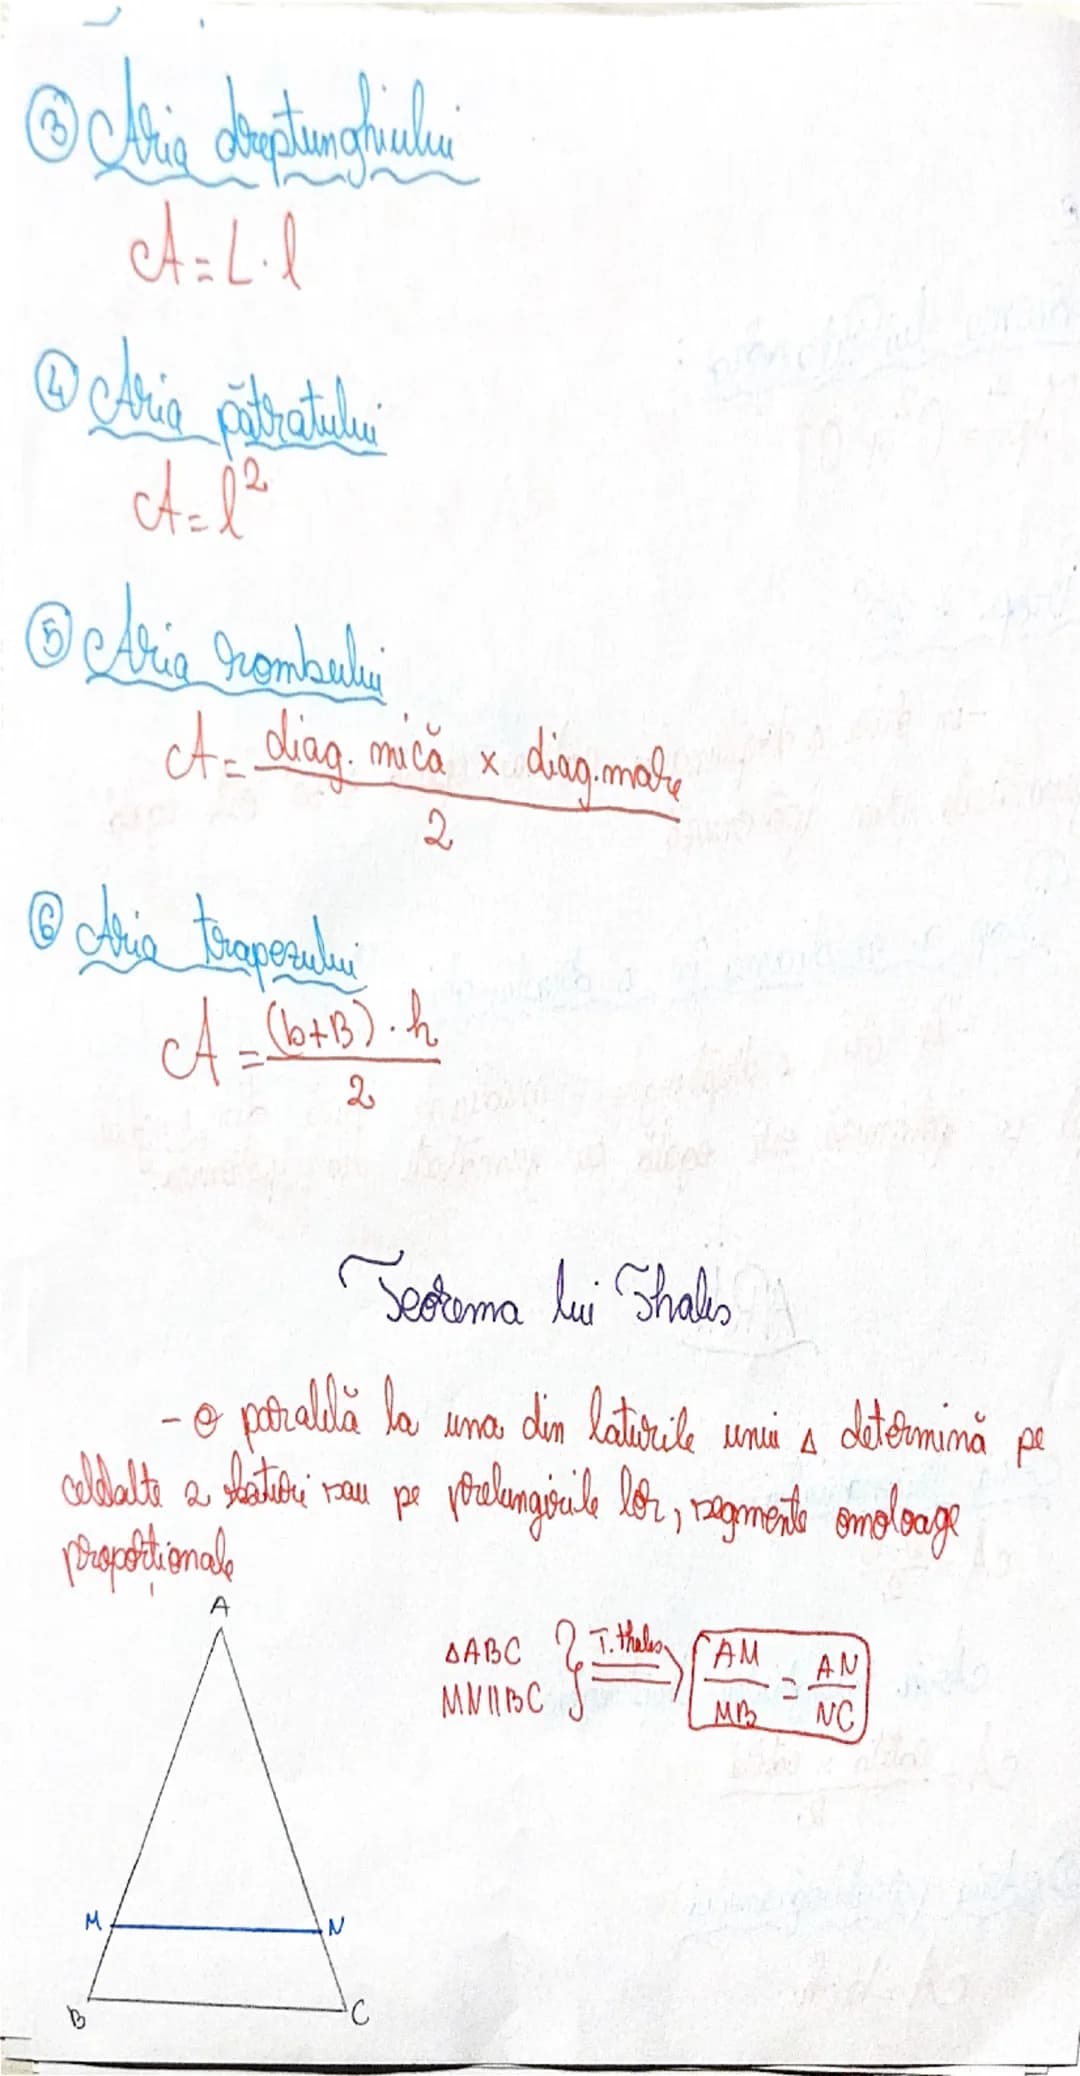 ③ Aria dreptunghiului
A = L · l
④ Aria pătratului
A = l²
⑤ Aria rombului
A = diag. mică x diag. mare
2
⑥ Aria trapezului
A = (b+B) · h
2
Teorema lui Thales
- O paralelă la una din laturile unui Δ determină pe
celelalte 2 laturi sau pe prelungirile lor, segmente omoloage
proporționale
A
ΔABC } T. thales ⟹ AM = AN
MN||BC MB NC
M N
B C